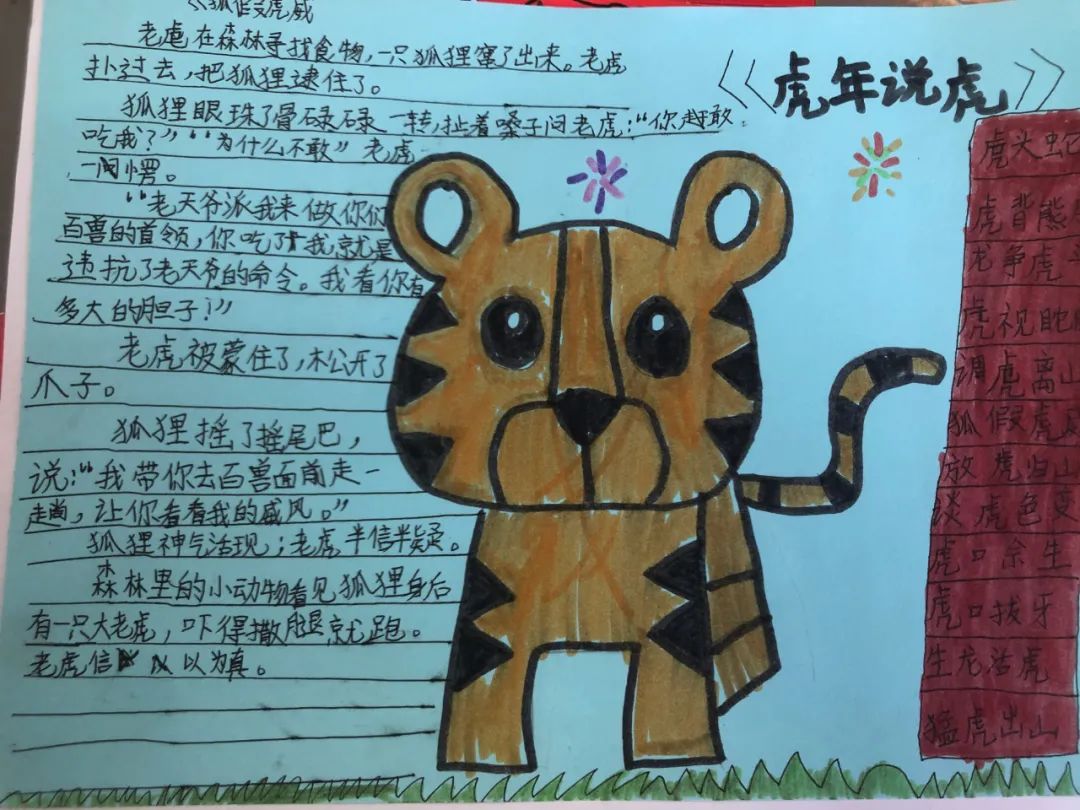 《狐假虎威
老虎在森林寻找食物，一只狐狸窜了出来。老虎
扑过去，把狐狸逮住了。
狐狸眼珠了骨碌碌一转，扯着嗓子问老虎：“你敢
吃我？”“为什么不敢”老虎
一愣。
“老天爷派我来做你们
百兽的首领，你吃了我就是
违抗了老天爷的命令。我看你有
多大的胆子！”
老虎被蒙住了，松开了
爪子。
狐狸摇了摇尾巴，
说：“我带你去百兽面前走一
趟，让你看看我的威风。”
狐狸神气活现；老虎半信半疑。
森林里的小动物看见狐狸身后
有一只大老虎，吓得撒腿就跑。
老虎信以为真。
《虎年说虎》
虎头蛇
虎背熊
龙争虎
虎视眈
调虎离山
狐假虎威
放虎归山
谈虎色变
虎口余生
虎口拔牙
生龙活虎
猛虎出山